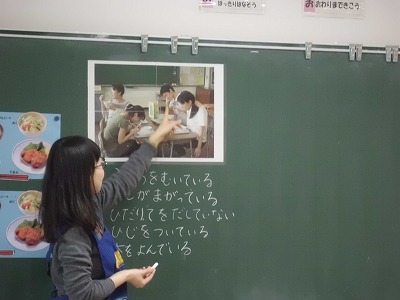 はっきりはなそう
お おわりまできこう
をむいている
がまがっている
ひだりてをだしていない
ひじをついている
をよんでいる